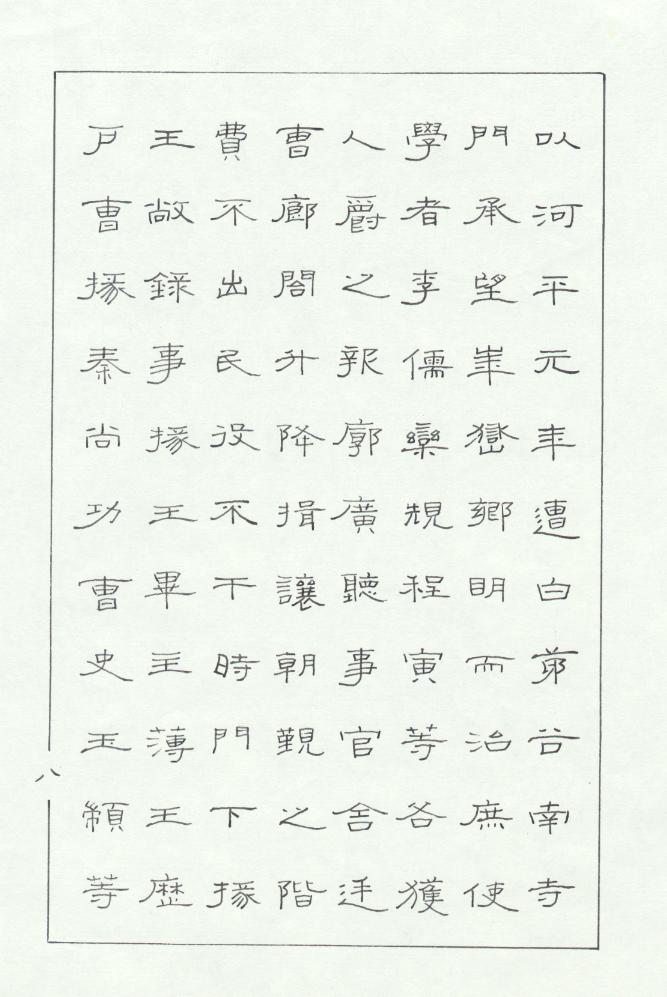 以河平元年遭白茅谷南寺
門承望崋嶽鄉明而治庶使
學者李儒欒規程寅等各獲
人爵之報廓廣聽事官舍廷
曹廊閣升降揖讓朝覲之階
費不出民役不干時門下掾
王敞錄事掾王畢主薄王歷
戶曹掾秦尚功曹史王顓等
八